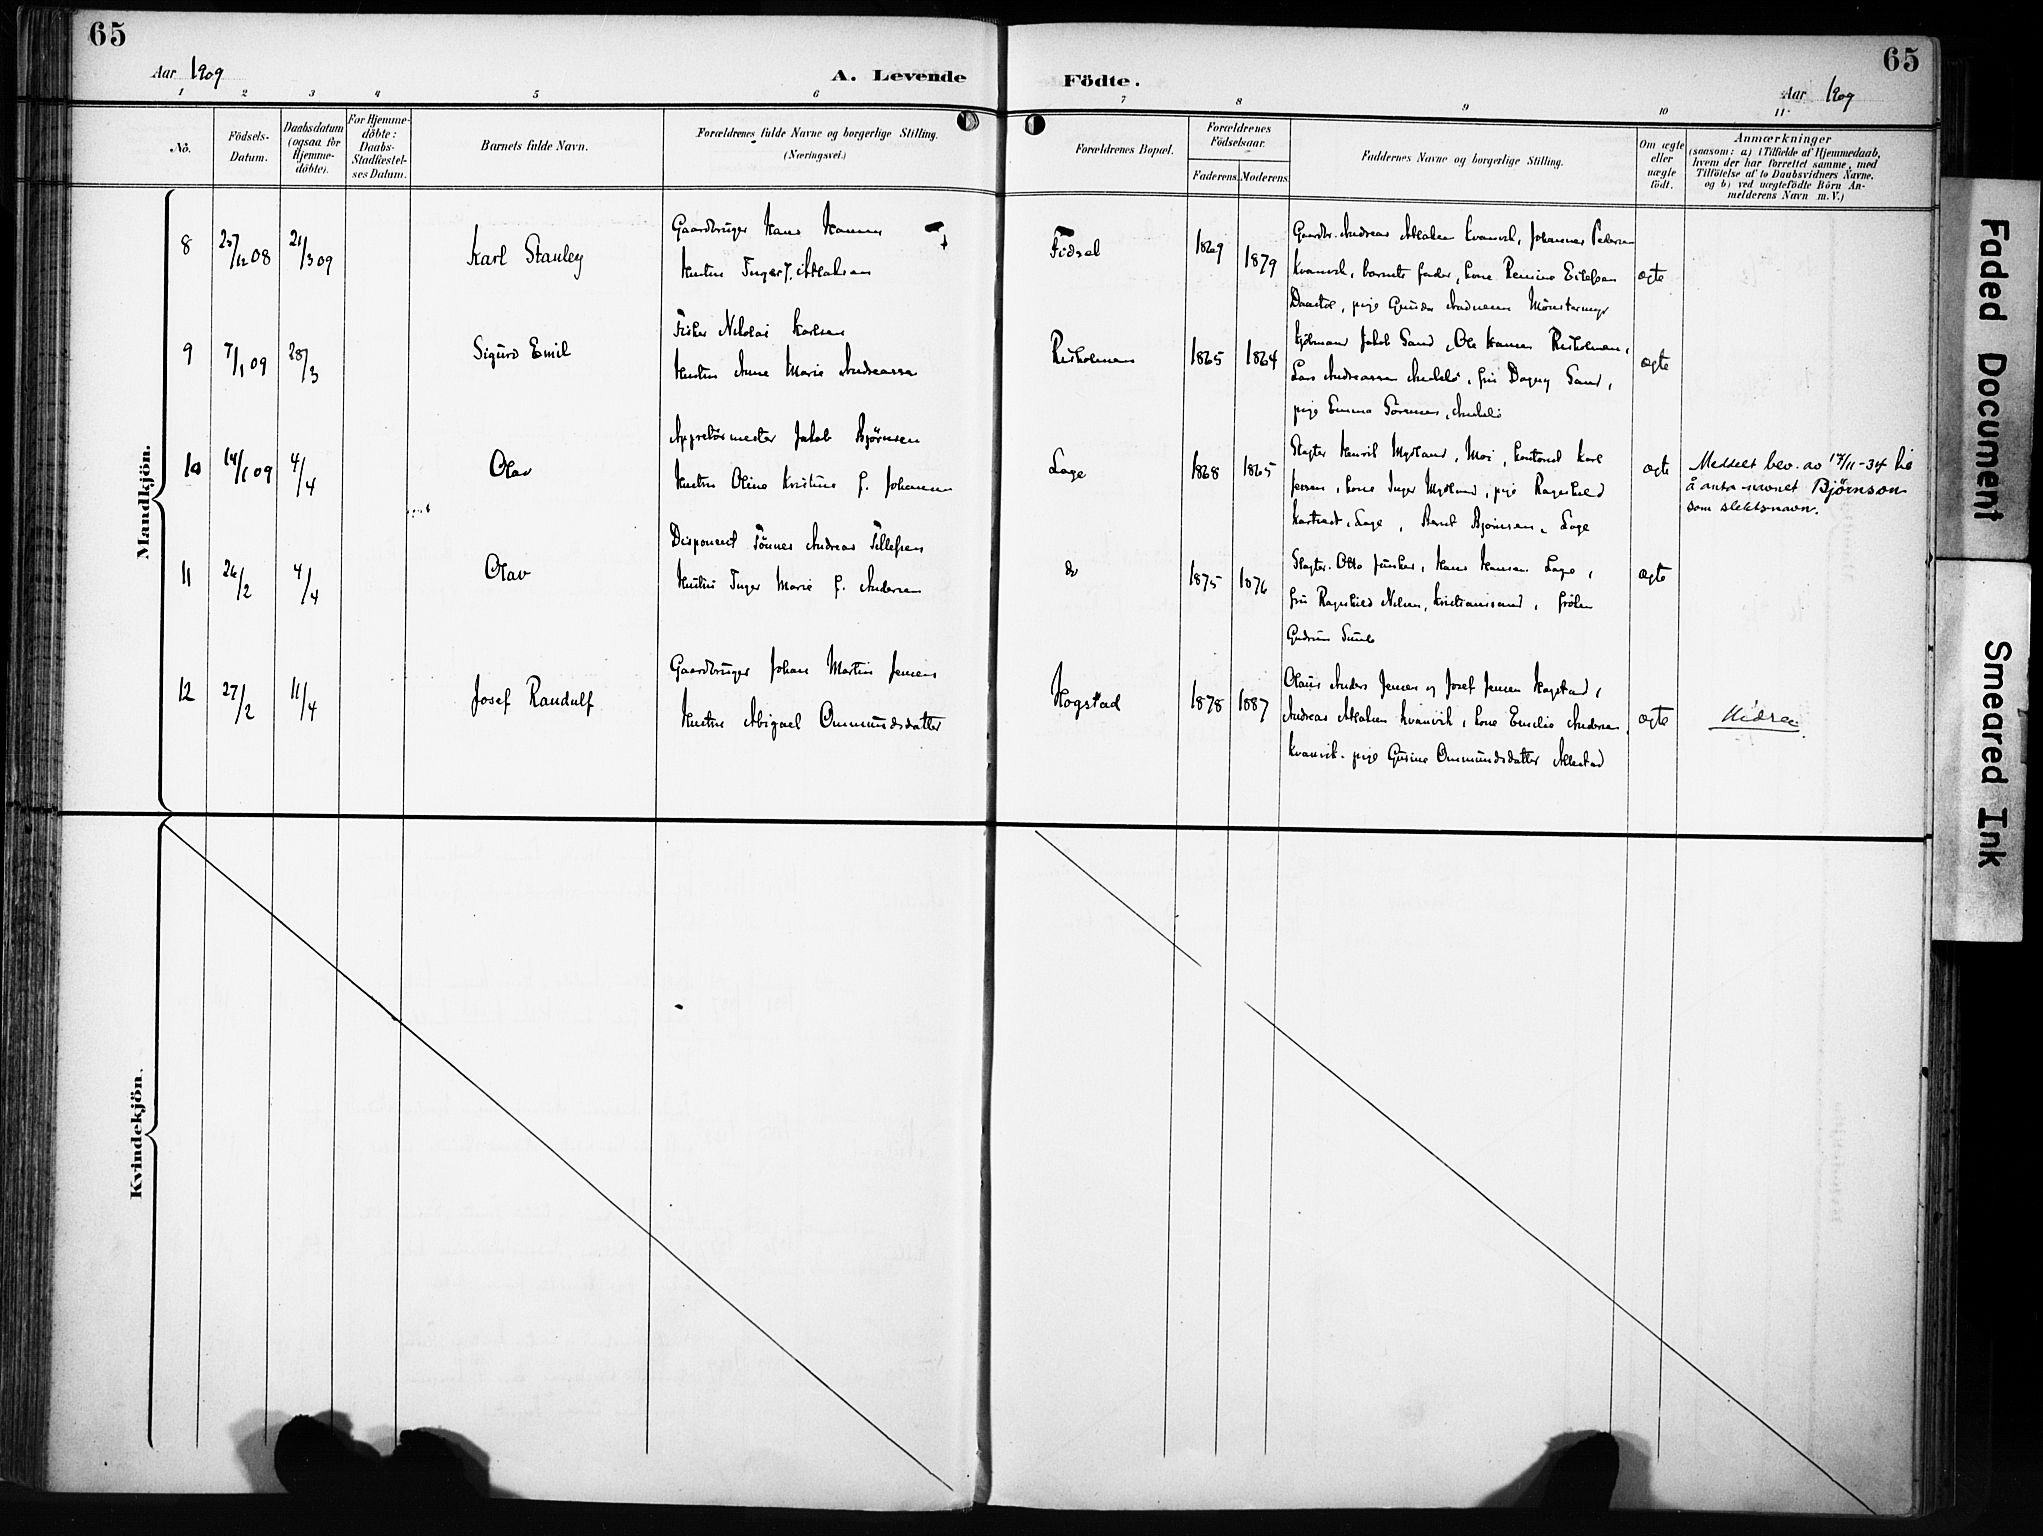 65
65
Aar 1909
A. Levende
Födte.
Aar 1909
1 2 3 4 5 6 7 8 9 10 11
No.
Födsels-
Datum.
Daabsdatum
(ogsaa for
Hjemme-
döbte).
For Hjemme-
döbte:
Daabs-
Stadfæstel-
ses Datum.
Barnets fulde Navn.
Forældrenes fulde Navne og borgerlige Stilling.
(Næringsvei.)
Forældrenes Bopæl.
Forældrenes
Födselsaar.
Faderens. Moderens.
Faddernes Navne og borgerlige Stilling.
Om ægte
eller
uægte
födt.
Anmærkninger
(saasom: a) i Tilfælde af Hjemmedaab,
hvem der har forrettet samme, med
Tilföielse af to Daabsvidners Navne.
og b) ved uægtefödte Börn An-
melderens Navn m. V.)
Mandkjön.
8 27/12 08 21/3 09 Karl Stanley
Gaardbruger Hans Hansen
Hustru Inger J. Abrahamsen
Fidsel 1869 1879
Gaardbr. Andreas Abrahamsen Kvanvik, Johannes Pedersen
Kvanvik, barnets fader, kone
pige
ægte
9 7/1 09 28/3 Sigurd Emil
Fisker Nikolai Karlsen
Hustru Anne Marie Andreassen
Risholmen 1865 1864
Jakob Sand, Ole Hansen Risholmen,
Lars Andreassen Andabö, fru Dagny Sand,
pige Emma Sörensen, Andabö
ægte
10 14/1 09 4/4 Olav
Appretörmester Jakob Bjørnsen
Hustru Oline Kristine f. Johannsen
Loge 1868 1865
Slagter Henrik Mydland, Moi, Karl
Jensen, kone Inger Mydland, pige Ragnhild
Loge, Bernt Bjørnsen, Loge
ægte
Meddelt bev. av 17/11-34 til
å anta navnet Bjørnson
som slektsnavn.
11 26/2 4/4 Olav
Disponent Tönnes Andreas Tellefsen
Hustru Inger Marie f. Andersen
do 1875 1876
Slagter Otto Junker, Hans Hansen Loge,
fru Ragnhild Nilsen, Kristianssand, fröken
Gudrun
ægte
12 27/2 11/4 Josef Randulf
Gaardbruger Johan Martin Jensen
Hustru Abigael Ommundsdatter
Hogstad 1878 1887
Olaus Anders Jensen og Josef Jensen Hogstad,
Andreas Abrahamsen Kvanvik, kone Emilie Andersen
Kvanvik. pige Gusine Ommundsdatter
ægte
Hidra
Kvindekjön.
Faded Document
Smeared Ink